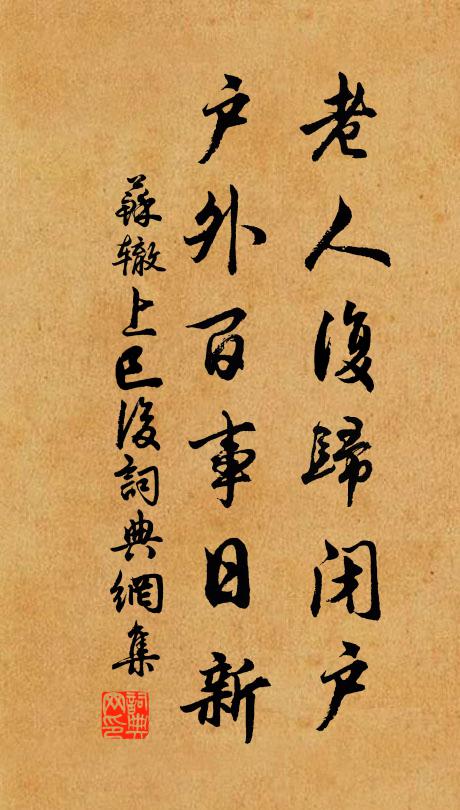 老人復歸闭户
户外百事日新
蘇辙上巳後詞典網集
詞典网印